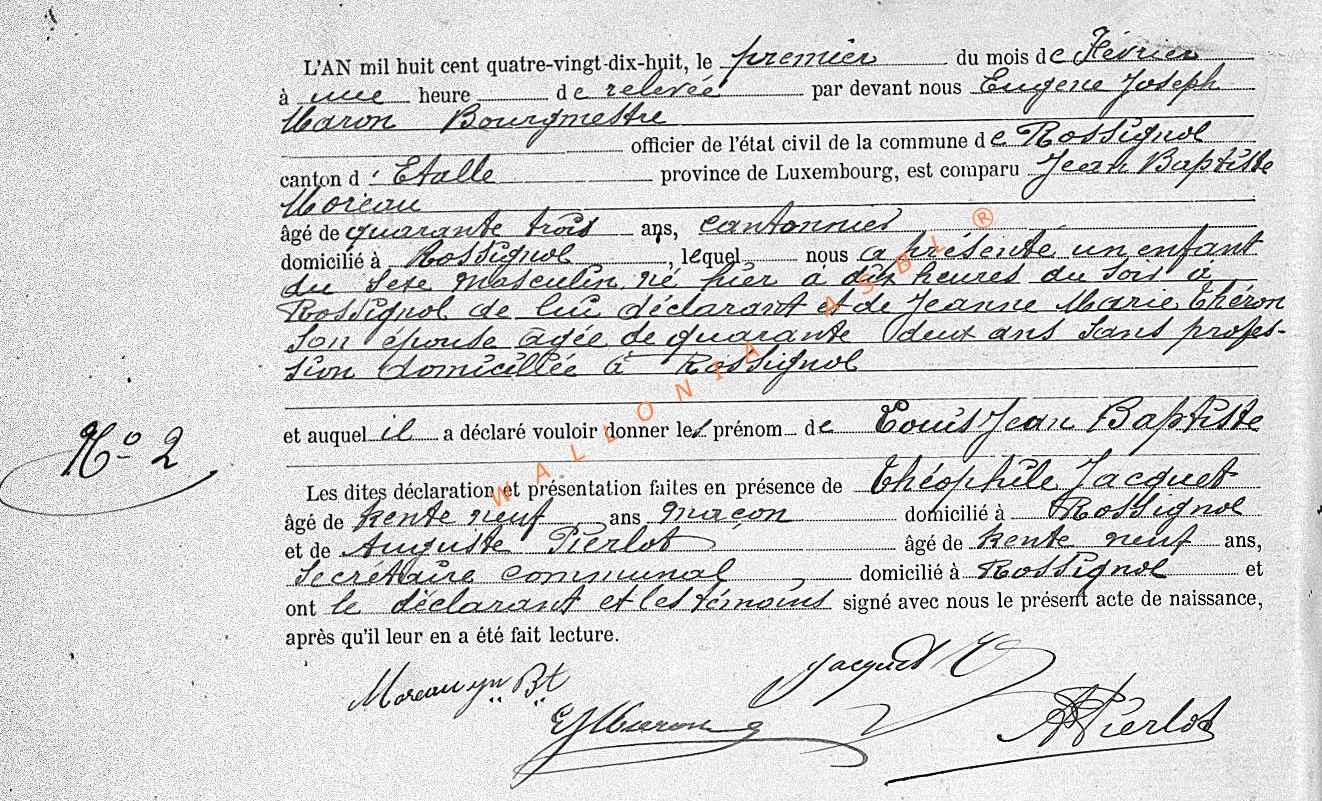 L'AN mil huit cent quatre-vingt-dix-huit, le premier du mois de Février
à une heure de relevée par devant nous Eugene Joseph
Maron Bourgmestre
officier de l'état civil de la commune de Rossignol
canton d'Etalle province de Luxembourg, est comparu Jean Baptiste
Moreau
âgé de quarante trois ans, cantonnier
domicilié à Rossignol, lequel nous a présenté un enfant
du sexe masculin né hier à dix heures du soir à
Rossignol de lui déclarant et de Jeanne Marie Théron
son épouse agée de quarante deux ans sans profes-
sion domicillée à Rossignol
et auquel il a déclaré vouloir donner les prénom de Louis Jean Baptiste
N° 2
Les dites déclaration et présentation faites en présence de Théophile Jacquet
âgé de trente neuf ans maçon domicilié à Rossignol
et de Auguste Pierlot âgé de trente neuf ans,
secrétaire communal, domicilié à Rossignol et
ont le déclarant et les témoins signé avec nous le présent acte de naissance,
après qu'il leur en a été fait lecture.
Moreau jn Bt Jacquet T
EJMaron APierlot
WALLONIA ASBL ®